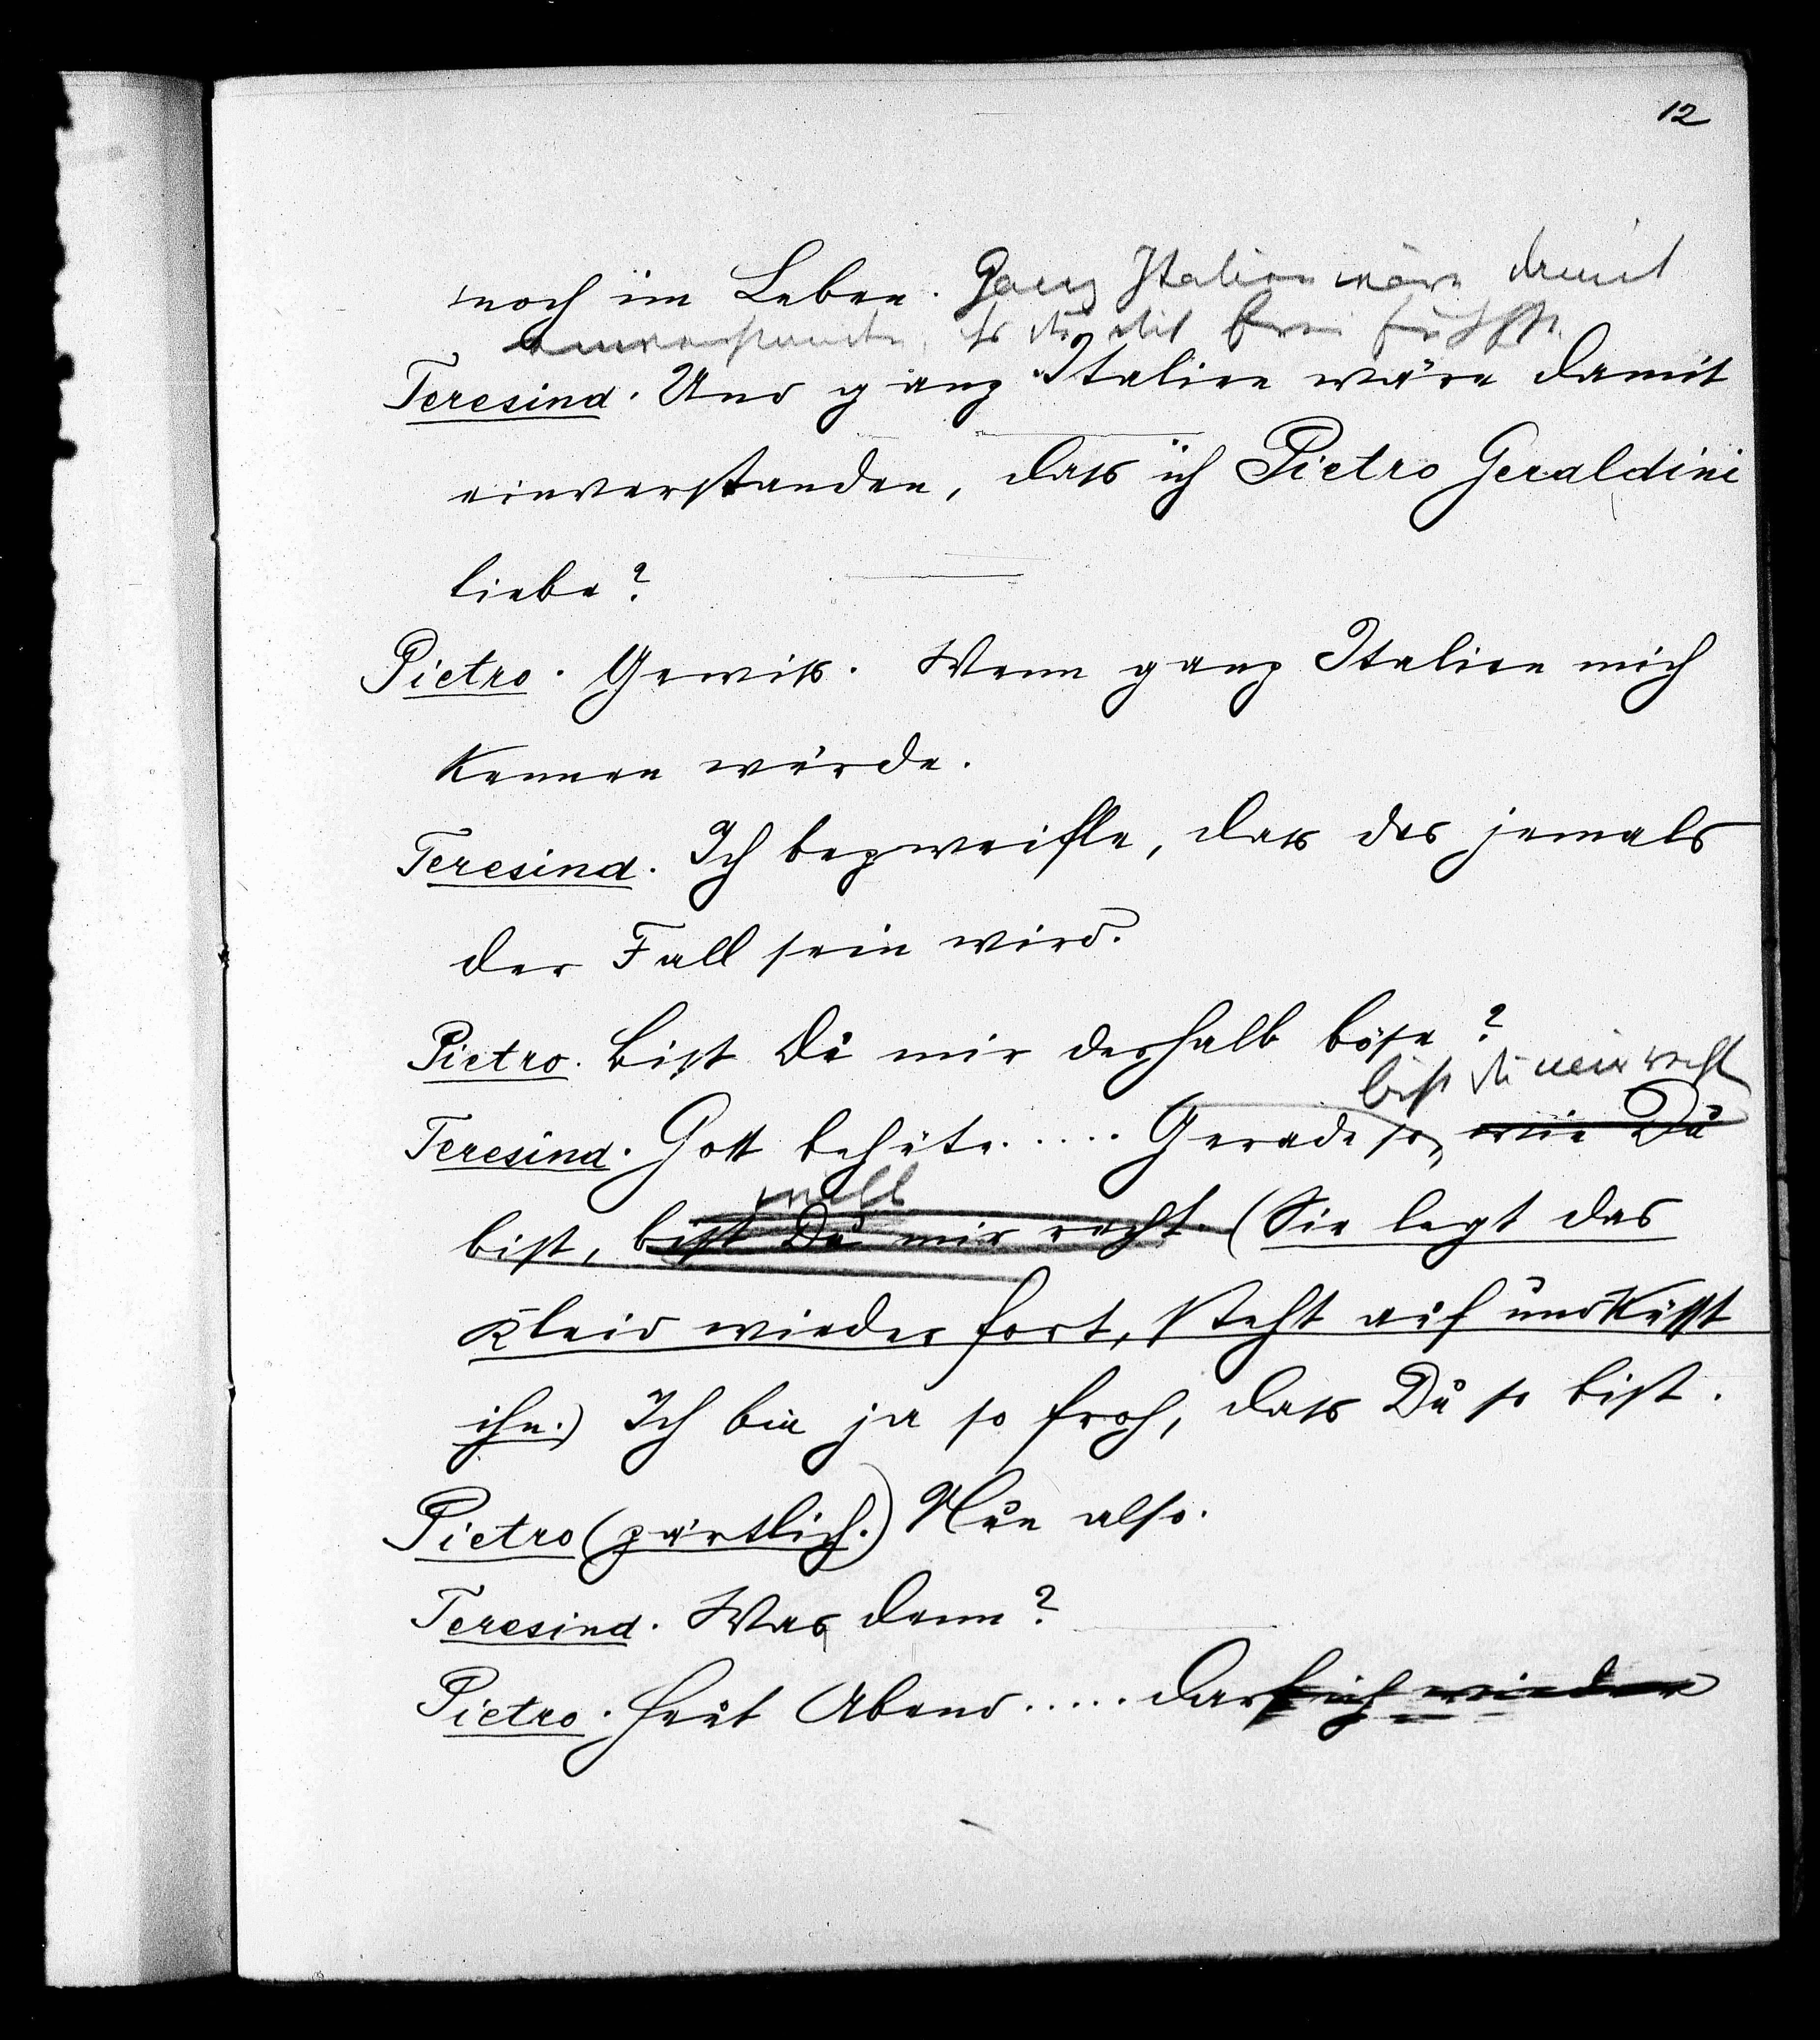 12
noch im Leben. Ganz Italien wäre damit
einverstanden, Du Dich
Teresina. Und ganz Italien wäre damit
einverstanden, dass ich Pietro Geraldini
liebe?
Pietro. Gewiss. Wenn ganz Italien mich
kennen würde.
Teresina. Ich bezweifle, dass das jemals
der Fall sein wird.
Pietro. Bist Du mir deshalb böse?
bist Du mir recht
Teresina. Gott behüte..... Gerade so, wie Du
bist, bist Du mir recht. (Sie legt das
Kleid wieder fort, steht auf und küsst
ihn.) Ich bin ja so froh, dass Du so bist.
Pietro (zärtlich.) Nun also.
Teresina. Was denn?
Pietro. Heut Abend..... darf ich wieder